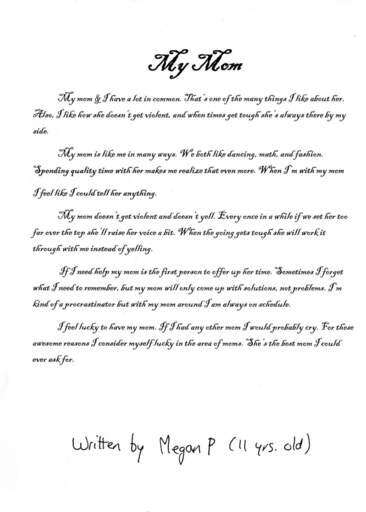 My Mom
My mom & I have a lot in common. That's one of the many things I like about her.
Also, I like how she doesn't get violent, and when times get tough she's always there by my
side.
My mom is like me in many ways. We both like dancing, math, and fashion.
Spending quality time with her makes me realize that even more. When I'm with my mom
I feel like I could tell her anything.
My mom doesn't get violent and doesn't yell. Every once in a while if we set her too
far over the top she'll raise her voice a bit. When the going gets tough she will work it
through with me instead of yelling.
If I need help my mom is the first person to offer up her time. Sometimes I forget
what I need to remember, but my mom will only come up with solutions, not problems. I'm
kind of a procrastinator but with my mom around I am always on schedule.
I feel lucky to have my mom. If I had any other mom I would probably cry. For these
awesome reasons I consider myself lucky in the area of moms. She's the best mom I could
ever ask for.
Written by Megan P (11 yrs. old)